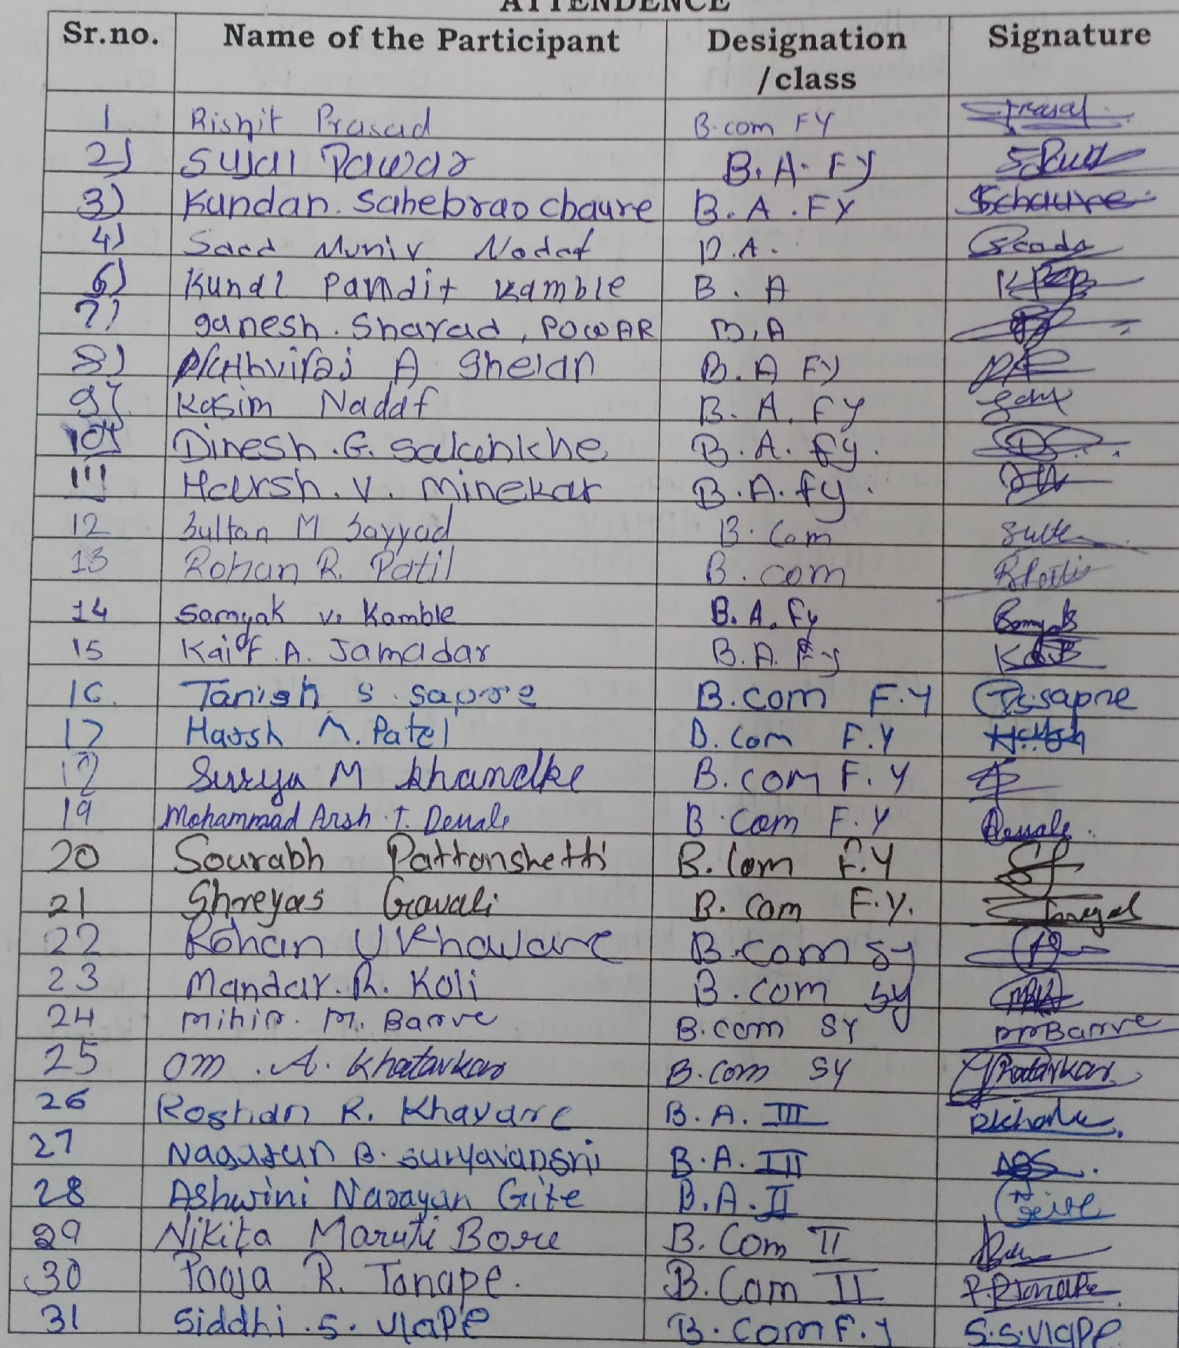 ATTENDENCE
Sr.no. Name of the Participant Designation /class Signature
1. Rishit Prasad B.com FY
2) Sujal Pawar B.A. FY
3) Kundan. Sahebrao chaure B.A. FY Schaure
4) Saad Muniv Nadaf B.A.
6) Kunal Pandit Kamble B. A
7) ganesh. Sharad, POWAR B.A
8) A B.A FY
9) Kasim Nadaf B.A. FY
10) Dinesh .G. Salunkhe B.A. fy.
11) Harsh. V. Minekar B.A. fy.
12 Sultan M Sayyad B.Com
13 Rohan R. Patil B.com
14 Samyak v. Kamble B.A. Fy
15 Kaif. A. Jamadar B.A. Fy
16. Tanish s. sapre B.com F.Y Ts.sapre
17 Harsh Patel B.com F.Y Harsh
Surya M B.com F.Y
19 Mohammad Arsh .T. B.Com F.Y
20 Sourabh Pattanshetti B.Com F.Y
21 Shreyas Gavali B.Com F.Y.
22 Rohan U Khavare B.com Sy
23 Mandar. R. Koli B.com Sy
24 mihir. M. Barve B.com SY Barve
25 Om .A. Khatavkar B.com SY Khatavkar
26 Roshan R. Khavare B.A. III
27 B. suryavanshi B.A. III
28 Ashwini Narayan Gite B.A. II
29 Nikita Maruti Bore B.Com II
30 Pooja R. Tanape. B.Com II P.R.Tanape
31 Siddhi .S. Vlape B.com F.y S.S.Vlape